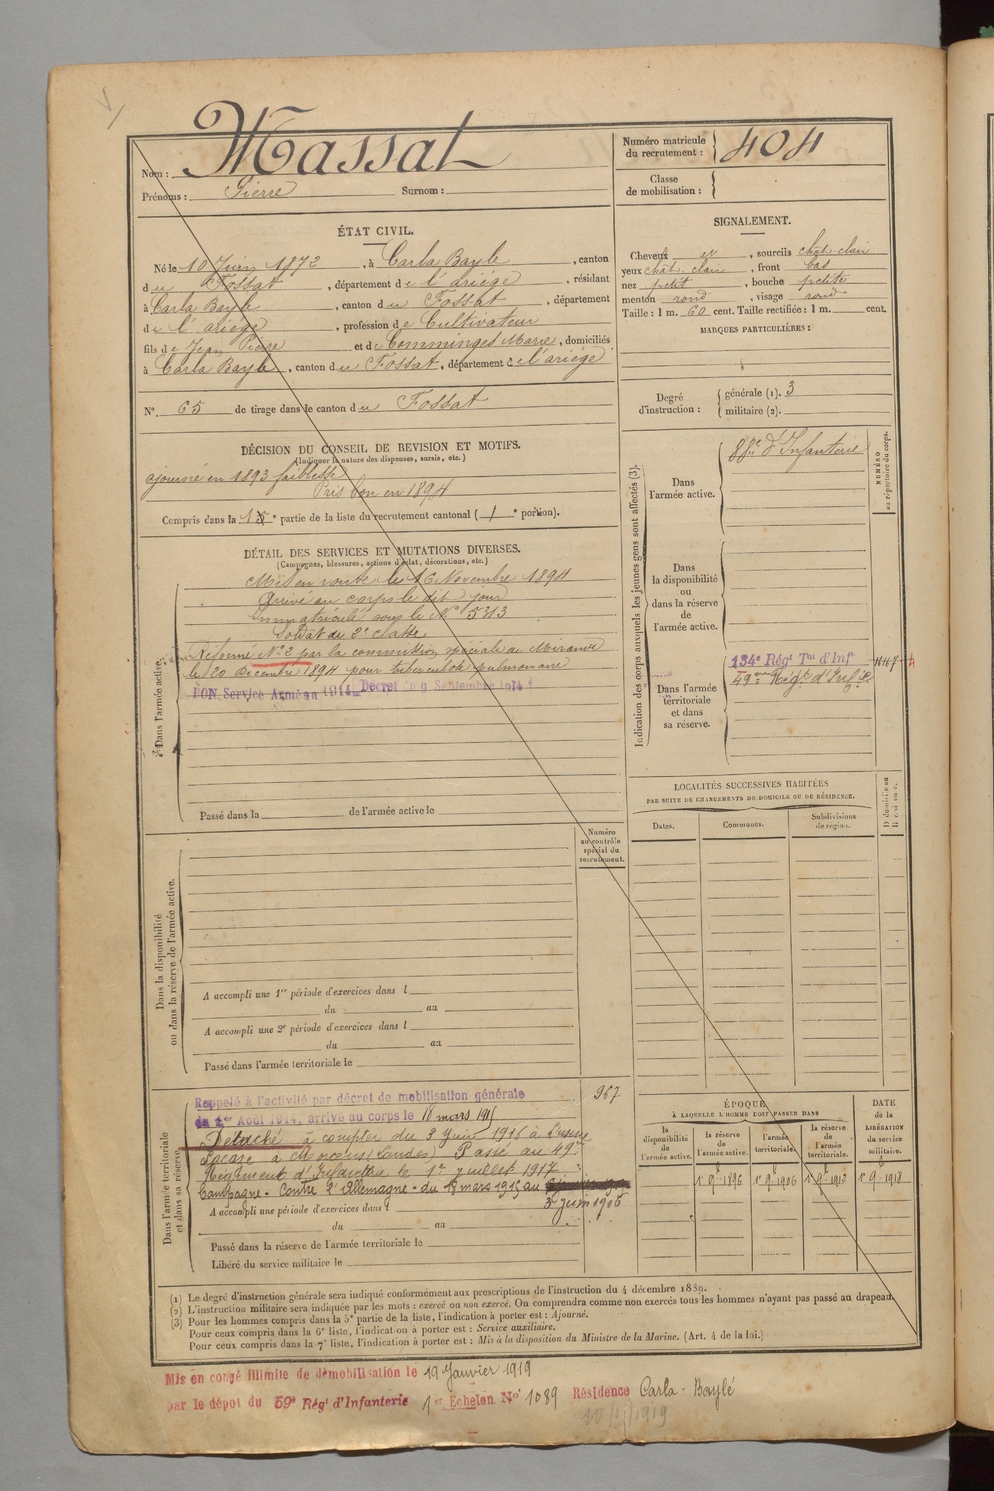 Nom : Massat
Prénoms : Pierre Surnom :
Numéro matricule du recrutement : 404
Classe de mobilisation :
ÉTAT CIVIL.
Né le 10 Juin 1872, à Carla Bayle, canton
du Fossat, département de l'ariège, résidant
à Carla Bayle, canton du Fossat, département
de l'ariège, profession de Cultivateur
fils de Jean Pierre et de Comminges Marie, domiciliés
à Carla Bayle, canton du Fossat, département de l'ariège
N° 65 de tirage dans le canton du Fossat
SIGNALEMENT.
Cheveux et, sourcils chat. clair
yeux chat. clair, front bas
nez petit, bouche petite
menton rond, visage rond
Taille : 1 m. 60 cent. Taille rectifiée : 1 m. cent.
MARQUES PARTICULIÈRES :
Degré d'instruction : générale (1). 3
militaire (2).
DÉCISION DU CONSEIL DE REVISION ET MOTIFS.
(Indiquer la nature des dispenses, sursis, etc.)
ajourné en 1893 faiblesse
Pris bon en 1894
Compris dans la 1e partie de la liste du recrutement cantonal ( 1e portion).
DÉTAIL DES SERVICES ET MUTATIONS DIVERSES.
(Campagnes, blessures, actions d'éclat, décorations, etc.)
Dans l'armée active.
Mis en route le 16 Novembre 1894
Arrivé au corps le dit jour
Immatriculé sous le N° 5313
Soldat de 2e classe
Réformé N° 2 par la commission spéciale de Mirande
le 20 Décembre 1894 pour tuberculose pulmonaire
BON Service Armé en 1914 Décret du 9 Septembre 1914
Passé dans la de l'armée active le
Indication des corps auxquels les jeunes gens sont affectés (3).
NUMÉRO au répertoire du corps.
Dans l'armée active. 88e d'Infanterie
Dans la disponibilité ou dans la réserve de l'armée active.
Dans l'armée territoriale et dans sa réserve.
134e Régt Tal d'Inf
49me Régt d'Infie
LOCALITÉS SUCCESSIVES HABITÉES
PAR SUITE DE CHANGEMENTS DE DOMICILE OU DE RÉSIDENCE.
Dates. Communes. Subdivisions de région.
Numéro au contrôle spécial du recrutement.
Dans la disponibilité ou dans la réserve de l'armée active.
A accompli une 1re période d'exercices dans l
du au
A accompli une 2e période d'exercices dans l
du au
Passé dans l'armée territoriale le
Dans l'armée territoriale et dans sa réserve.
Rappelé à l'activité par décret de mobilisation générale
du 1er Août 1914, arrivé au corps le 18 mars 1915
967
Détaché à compter du 3 Juin 1915 à l'usine
Lacaze à (Landes) Passé au 49e
Régiment d'Infanterie le 1er juillet 1917
Campagne - Contre l'Allemagne - du 18 mars 1915 au
3 juin 1915
A accompli une période d'exercices dans l
du au
Passé dans la réserve de l'armée territoriale le
Libéré du service militaire le
ÉPOQUE
À LAQUELLE L'HOMME DOIT PASSER DANS
DATE de la LIBÉRATION du service militaire.
la disponibilité de l'armée active. la réserve de l'armée active. l'armée territoriale. la réserve de l'armée territoriale.
1 9bre 1896 1 9bre 1906 1 9bre 1912 1 9bre 1918
(1) Le degré d'instruction générale sera indiqué conformément aux prescriptions de l'instruction du 4 décembre 1889.
(2) L'instruction militaire sera indiquée par les mots : exercé ou non exercé. On comprendra comme non exercés tous les hommes n'ayant pas passé au drapeau.
(3) Pour les hommes compris dans la 5e partie de la liste, l'indication à porter est : Ajourné.
Pour ceux compris dans la 6e liste, l'indication à porter est : Service auxiliaire.
Pour ceux compris dans la 7e liste, l'indication à porter est : Mis à la disposition du Ministre de la Marine. (Art. 4 de la loi.)
Mis en congé illimité de démobilisation le 19 Janvier 1919
par le dépôt du 59e Régt d'Infanterie 1er Echelon N° 1089 Résidence Carla-Baylé